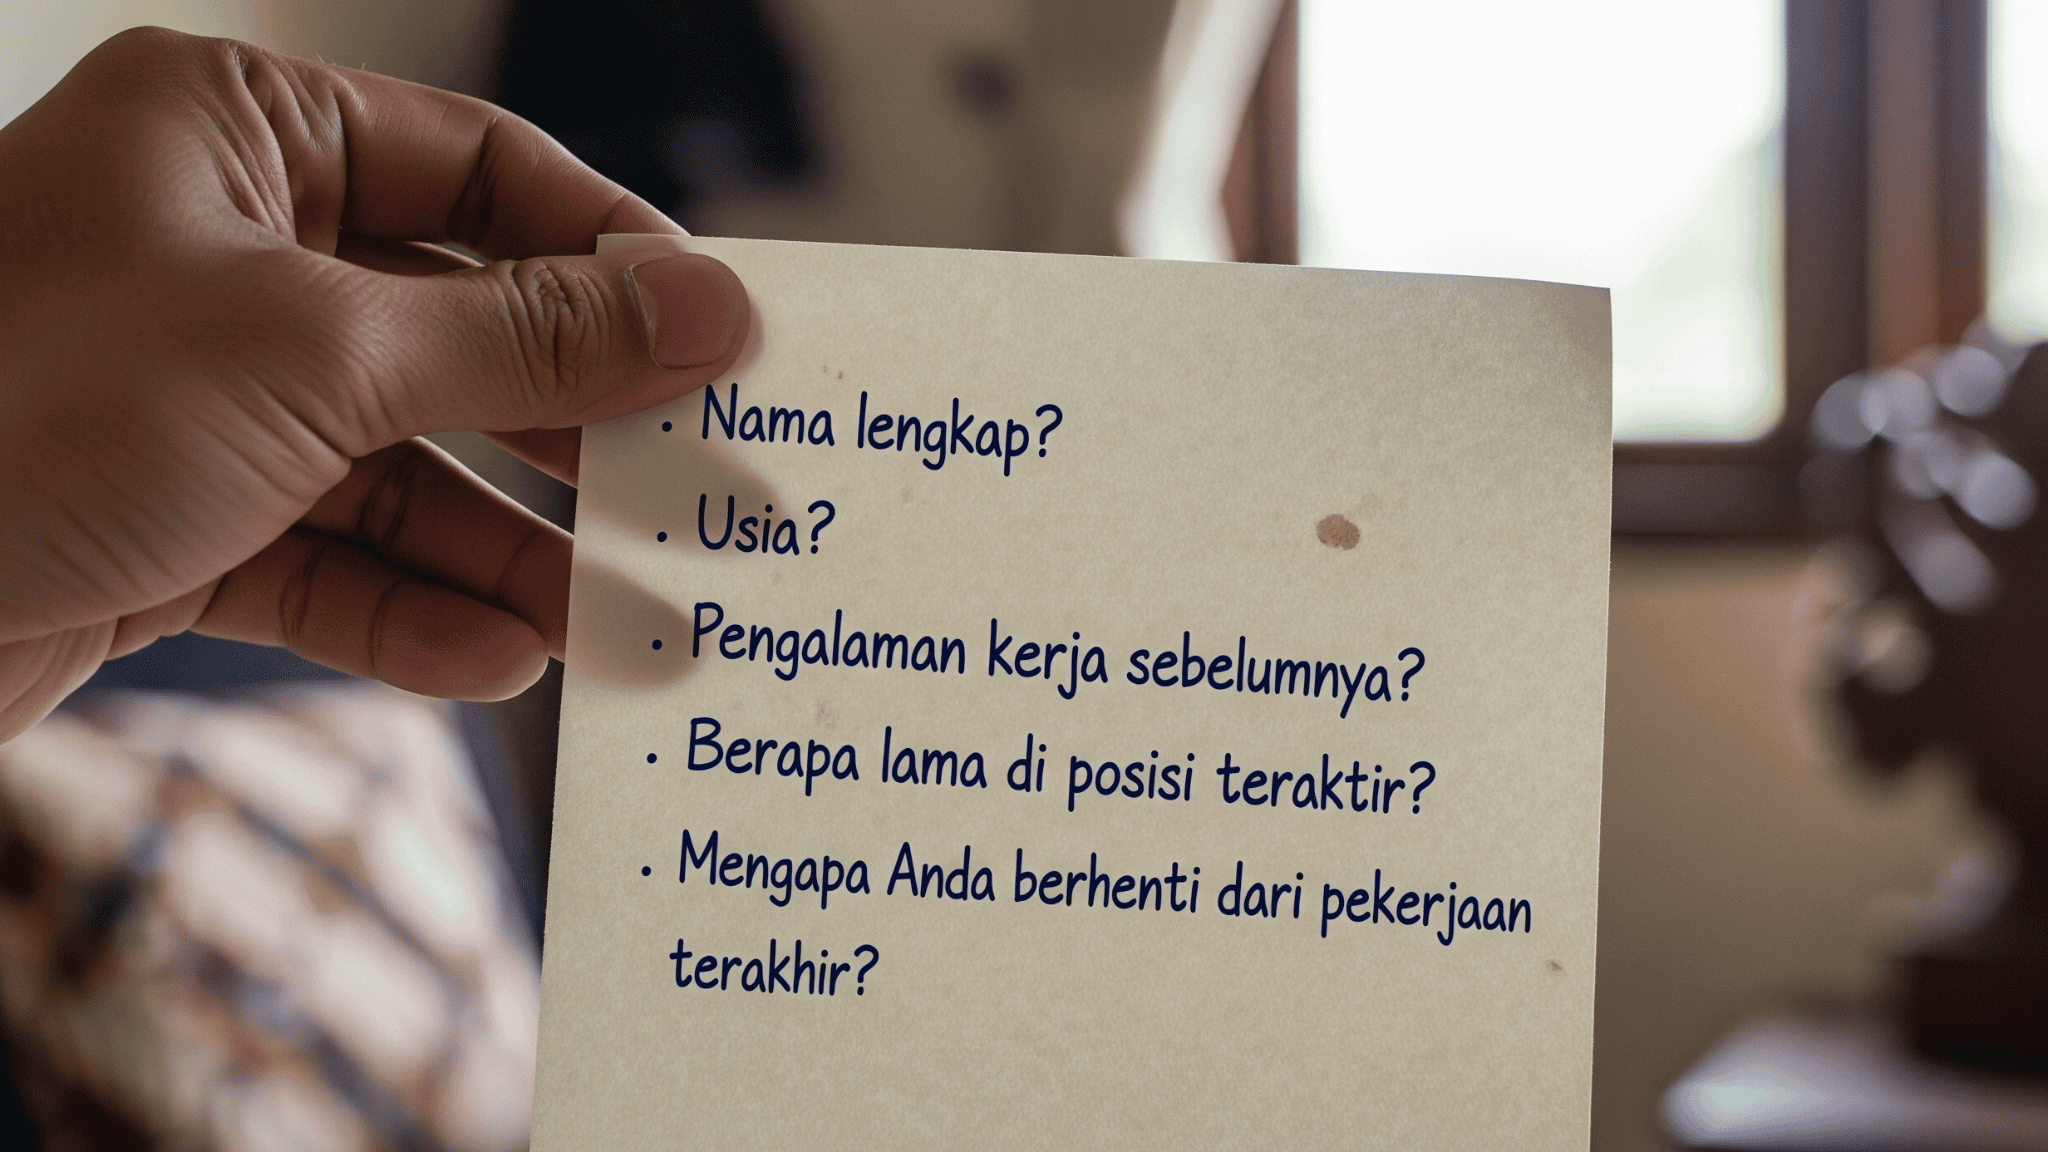 • Nama lengkap?
• Usia?
• Pengalaman kerja sebelumnya?
• Berapa lama di posisi teraktir?
• Mengapa Anda berhenti dari pekerjaan
terakhir?